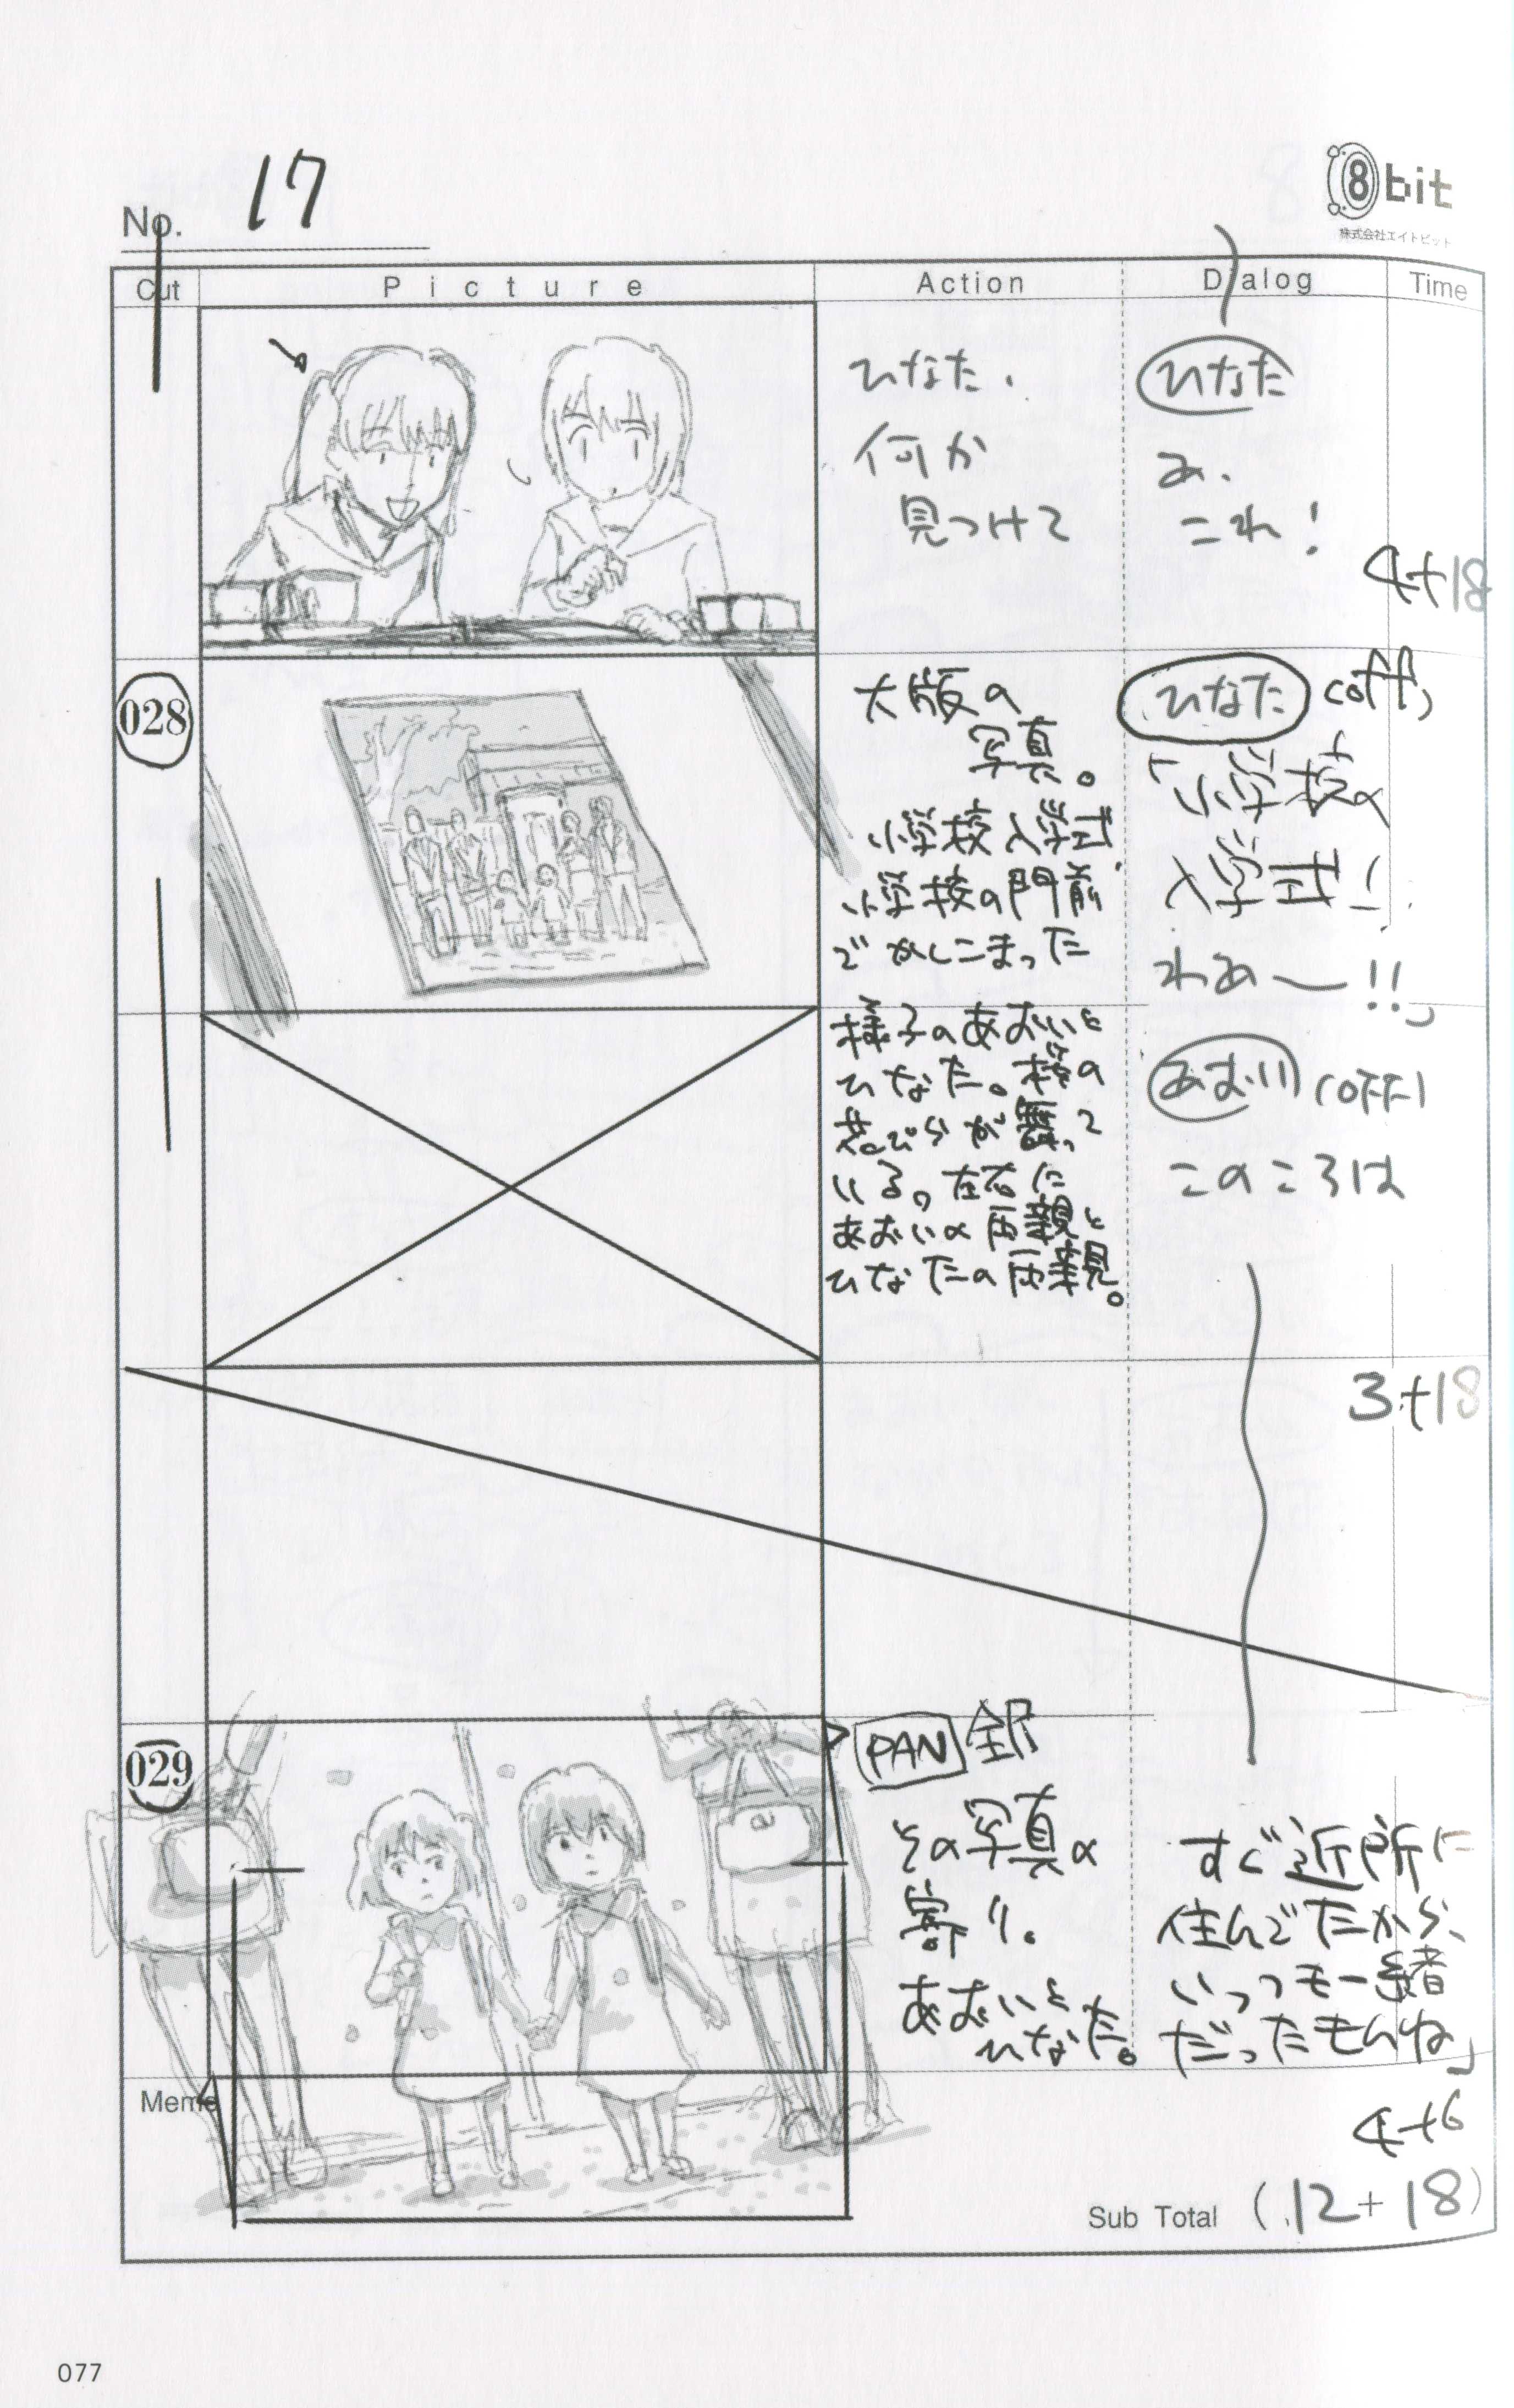 No. 17
8bit
株式会社エイトビット
Cut Picture Action Dialog Time
ひなた、
何か
見つけて
ひなた
あ、
これ!
4+18
028
大版の
写真。
小学校入学式
小学校の門前
でかしこまった
様子のあおいと
ひなた。桜の
花びらが舞って
いる。左右に
あおいの両親と
ひなたの両親。
ひなた (off)
「小学校の
入学式!
わあー!!」
あおい (off)
このころは
3+18
029
PAN 全尺
その写真の
寄り。
あおいと
ひなた。
すぐ近所に
住んでたから、
いっつも一緒
だったもんね」
4+6
Memo
Sub Total (12+18)
077